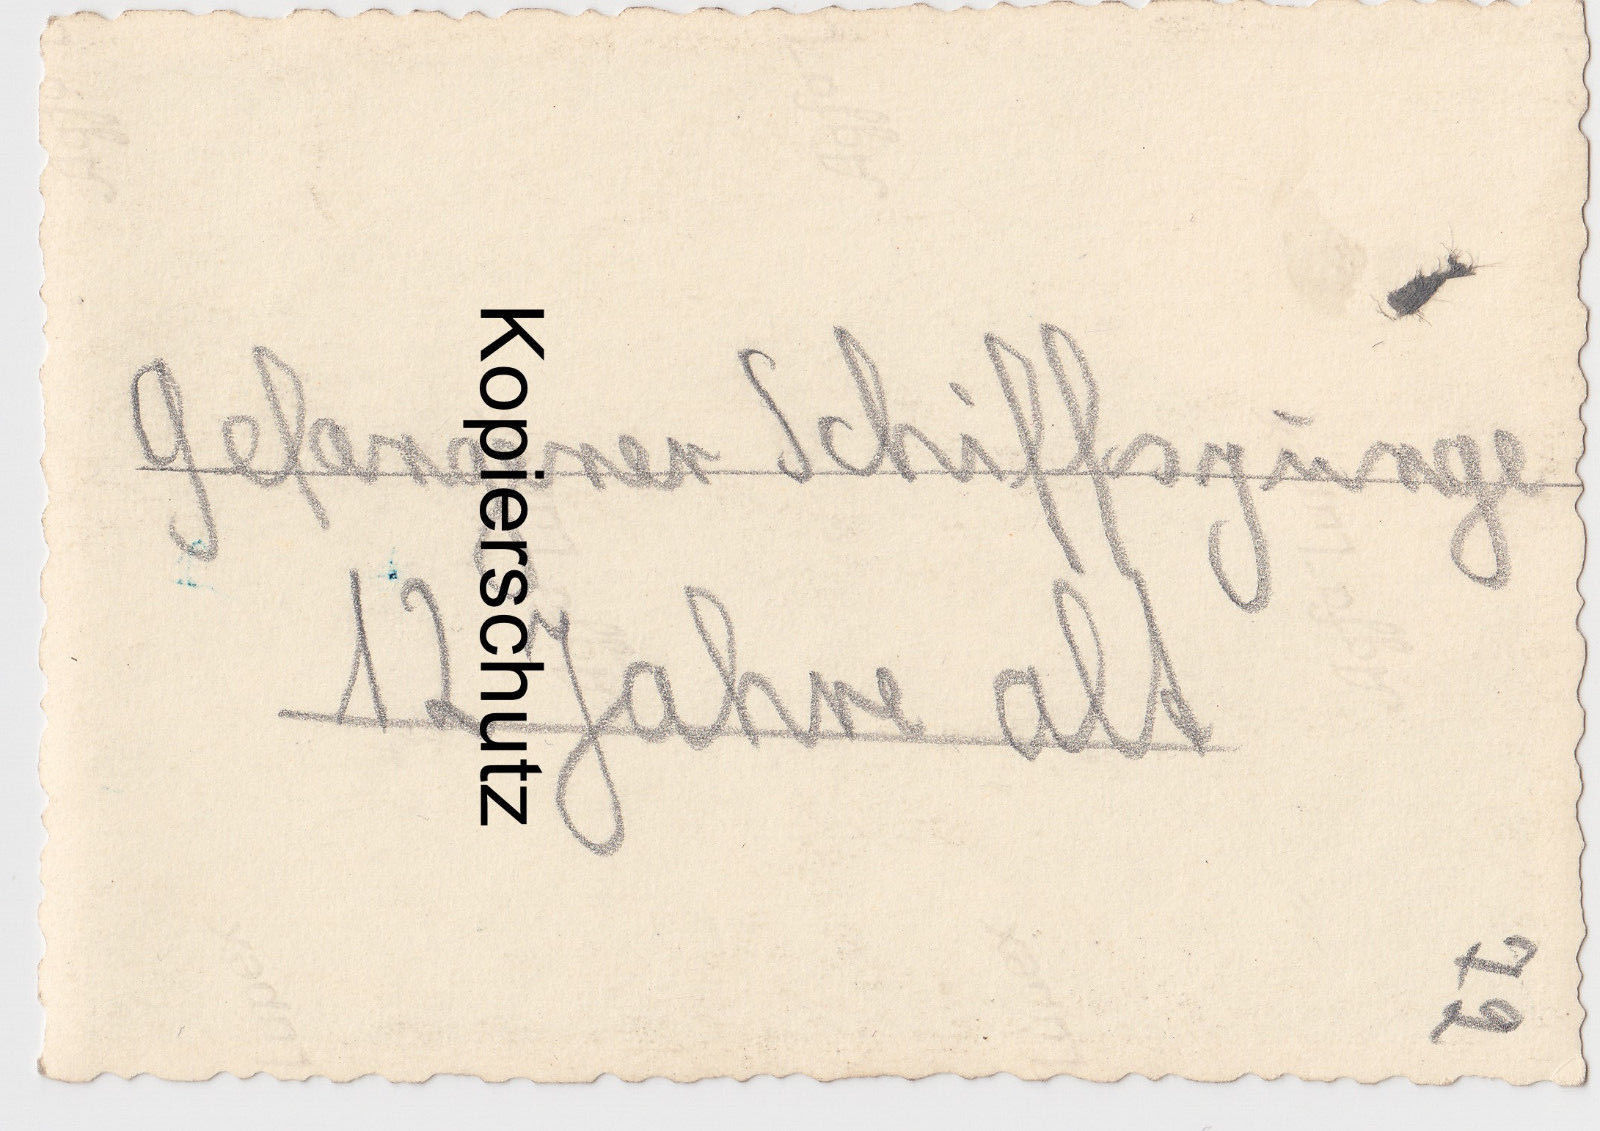 gefangener Schiffsjunge
12 Jahre alt
Kopierschutz